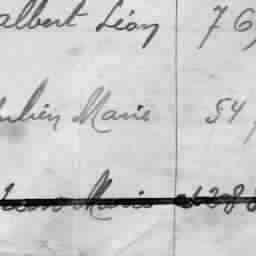 albert Léon 76
Julien Marie 54
Marie 288